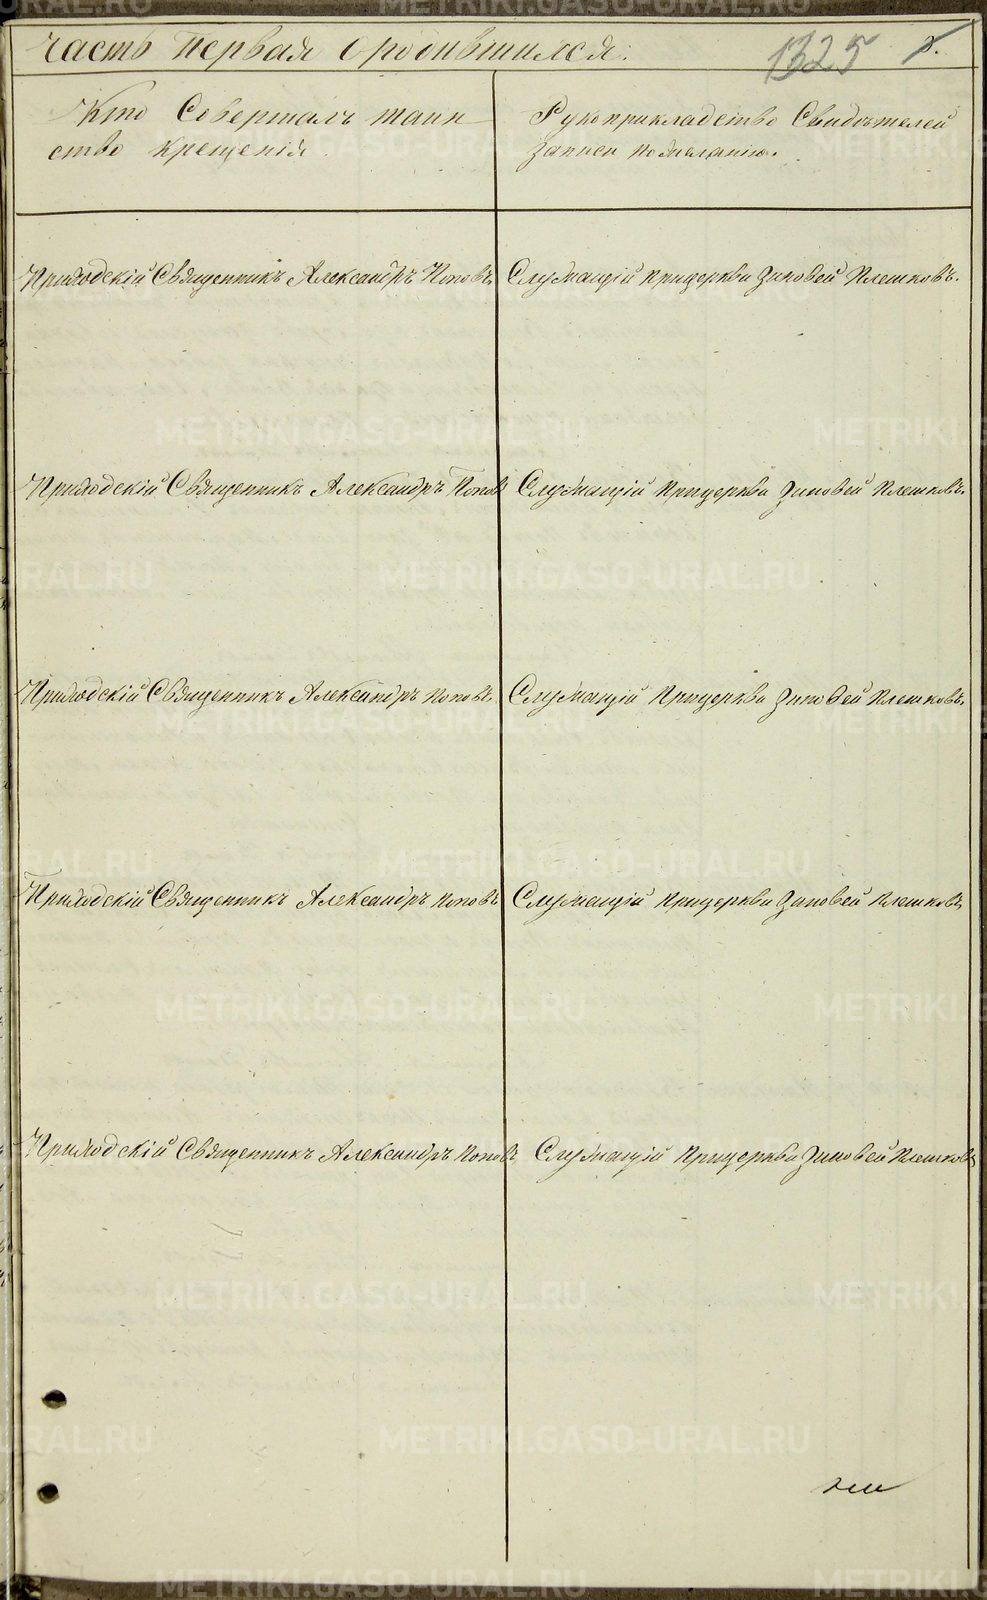 Часть первая о родившихся.
1325
Кто Совершалъ таин
ство крещенія.
Рукоприкладство Свидѣтелей
записи по желанію.
Приходскій Священникъ Александръ Поповъ
Служащій прицеркви Зиновей Плешковъ.
Приходскій Священникъ Александръ Поповъ
Служащій прицеркви Зиновей Плешковъ.
Приходскій Священникъ Александръ Поповъ
Служащій прицеркви Зиновей Плешковъ.
Приходскій Священникъ Александръ Поповъ
Служащій прицеркви Зиновей Плешковъ
Приходскій Священникъ Александръ Поповъ
Служащій прицеркви Зиновей Плешковъ
METRIKI.GASO-URAL.RU